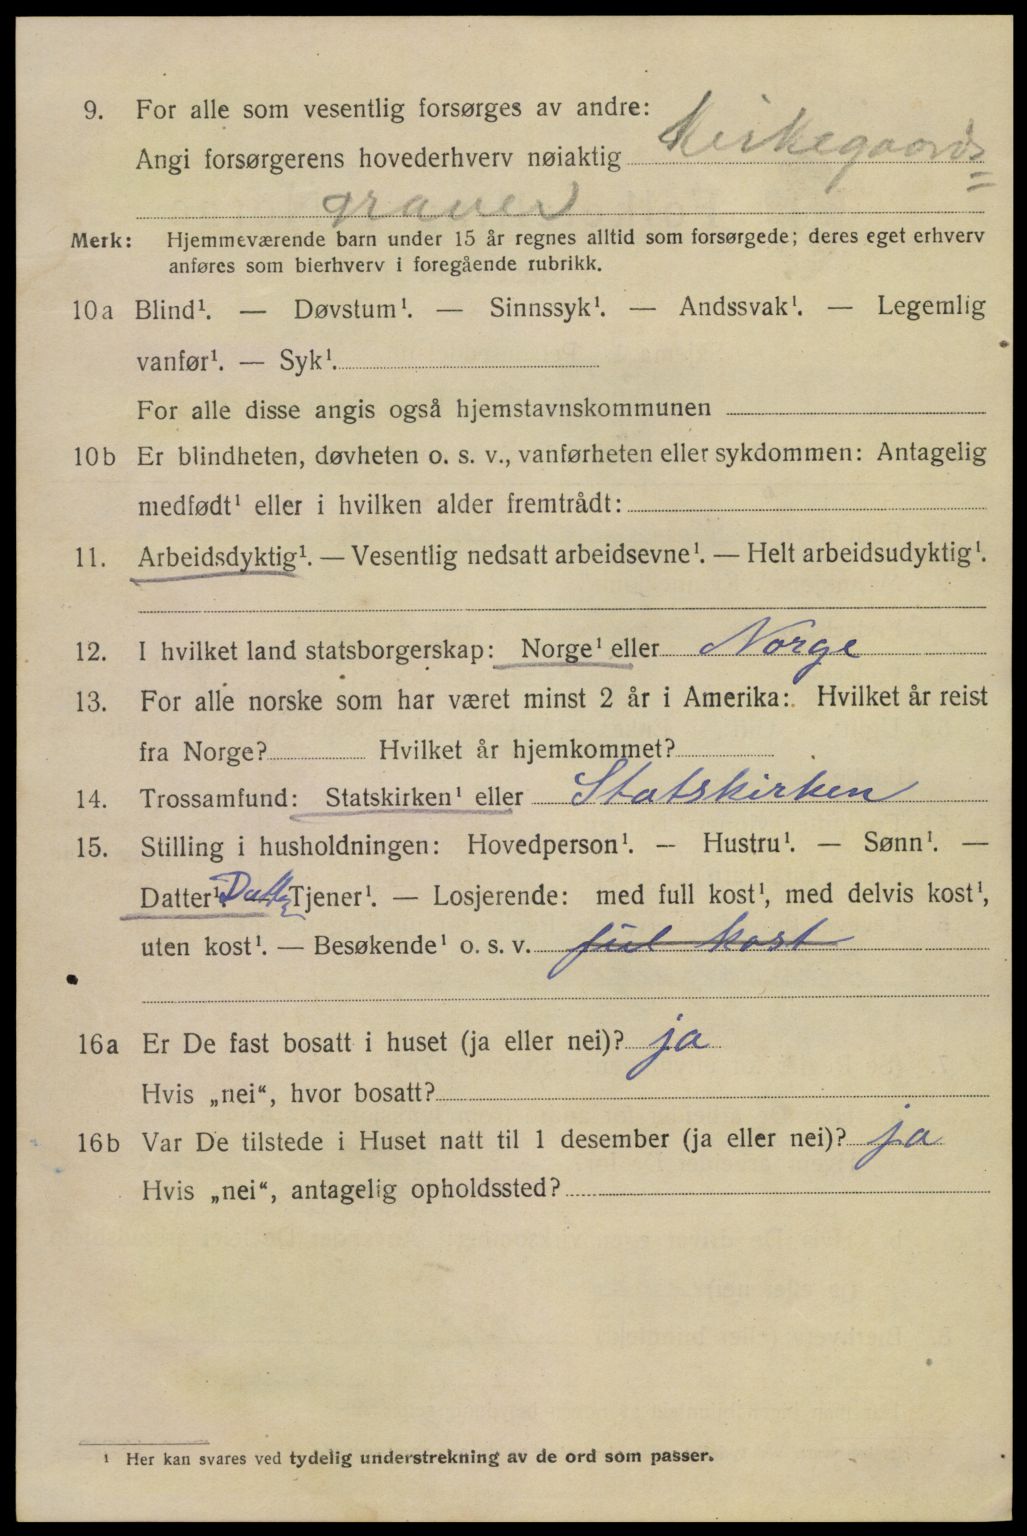 9. For alle som vesentlig forsørges av andre:
Angi forsørgerens hovederhverv nøiaktig Kirkegaards=
graver
Merk: Hjemmeværende barn under 15 år regnes alltid som forsørgede; deres eget erhverv
anføres som bierhverv i foregående rubrikk.
10a Blind¹. — Døvstum¹. — Sinnssyk¹. — Andssvak¹. — Legemlig
vanfør¹. — Syk¹.
For alle disse angis også hjemstavnskommunen
10b Er blindheten, døvheten o. s. v., vanførheten eller sykdommen: Antagelig
medfødt¹ eller i hvilken alder fremtrådt:
11. Arbeidsdyktig¹. — Vesentlig nedsatt arbeidsevne¹. — Helt arbeidsudyktig¹.
12. I hvilket land statsborgerskap: Norge¹ eller Norge
13. For alle norske som har været minst 2 år i Amerika: Hvilket år reist
fra Norge? Hvilket år hjemkommet?
14. Trossamfund: Statskirken¹ eller Statskirken
15. Stilling i husholdningen: Hovedperson¹. — Hustru¹. — Sønn¹. —
Datter¹. Datter Tjener¹. — Losjerende: med full kost¹, med delvis kost¹,
uten kost¹. — Besøkende¹ o. s. v. ful kost
16a Er De fast bosatt i huset (ja eller nei)? ja
Hvis „nei“, hvor bosatt?
16b Var De tilstede i Huset natt til 1 desember (ja eller nei)? ja
Hvis „nei“, antagelig opholdssted?
¹ Her kan svares ved tydelig understrekning av de ord som passer.